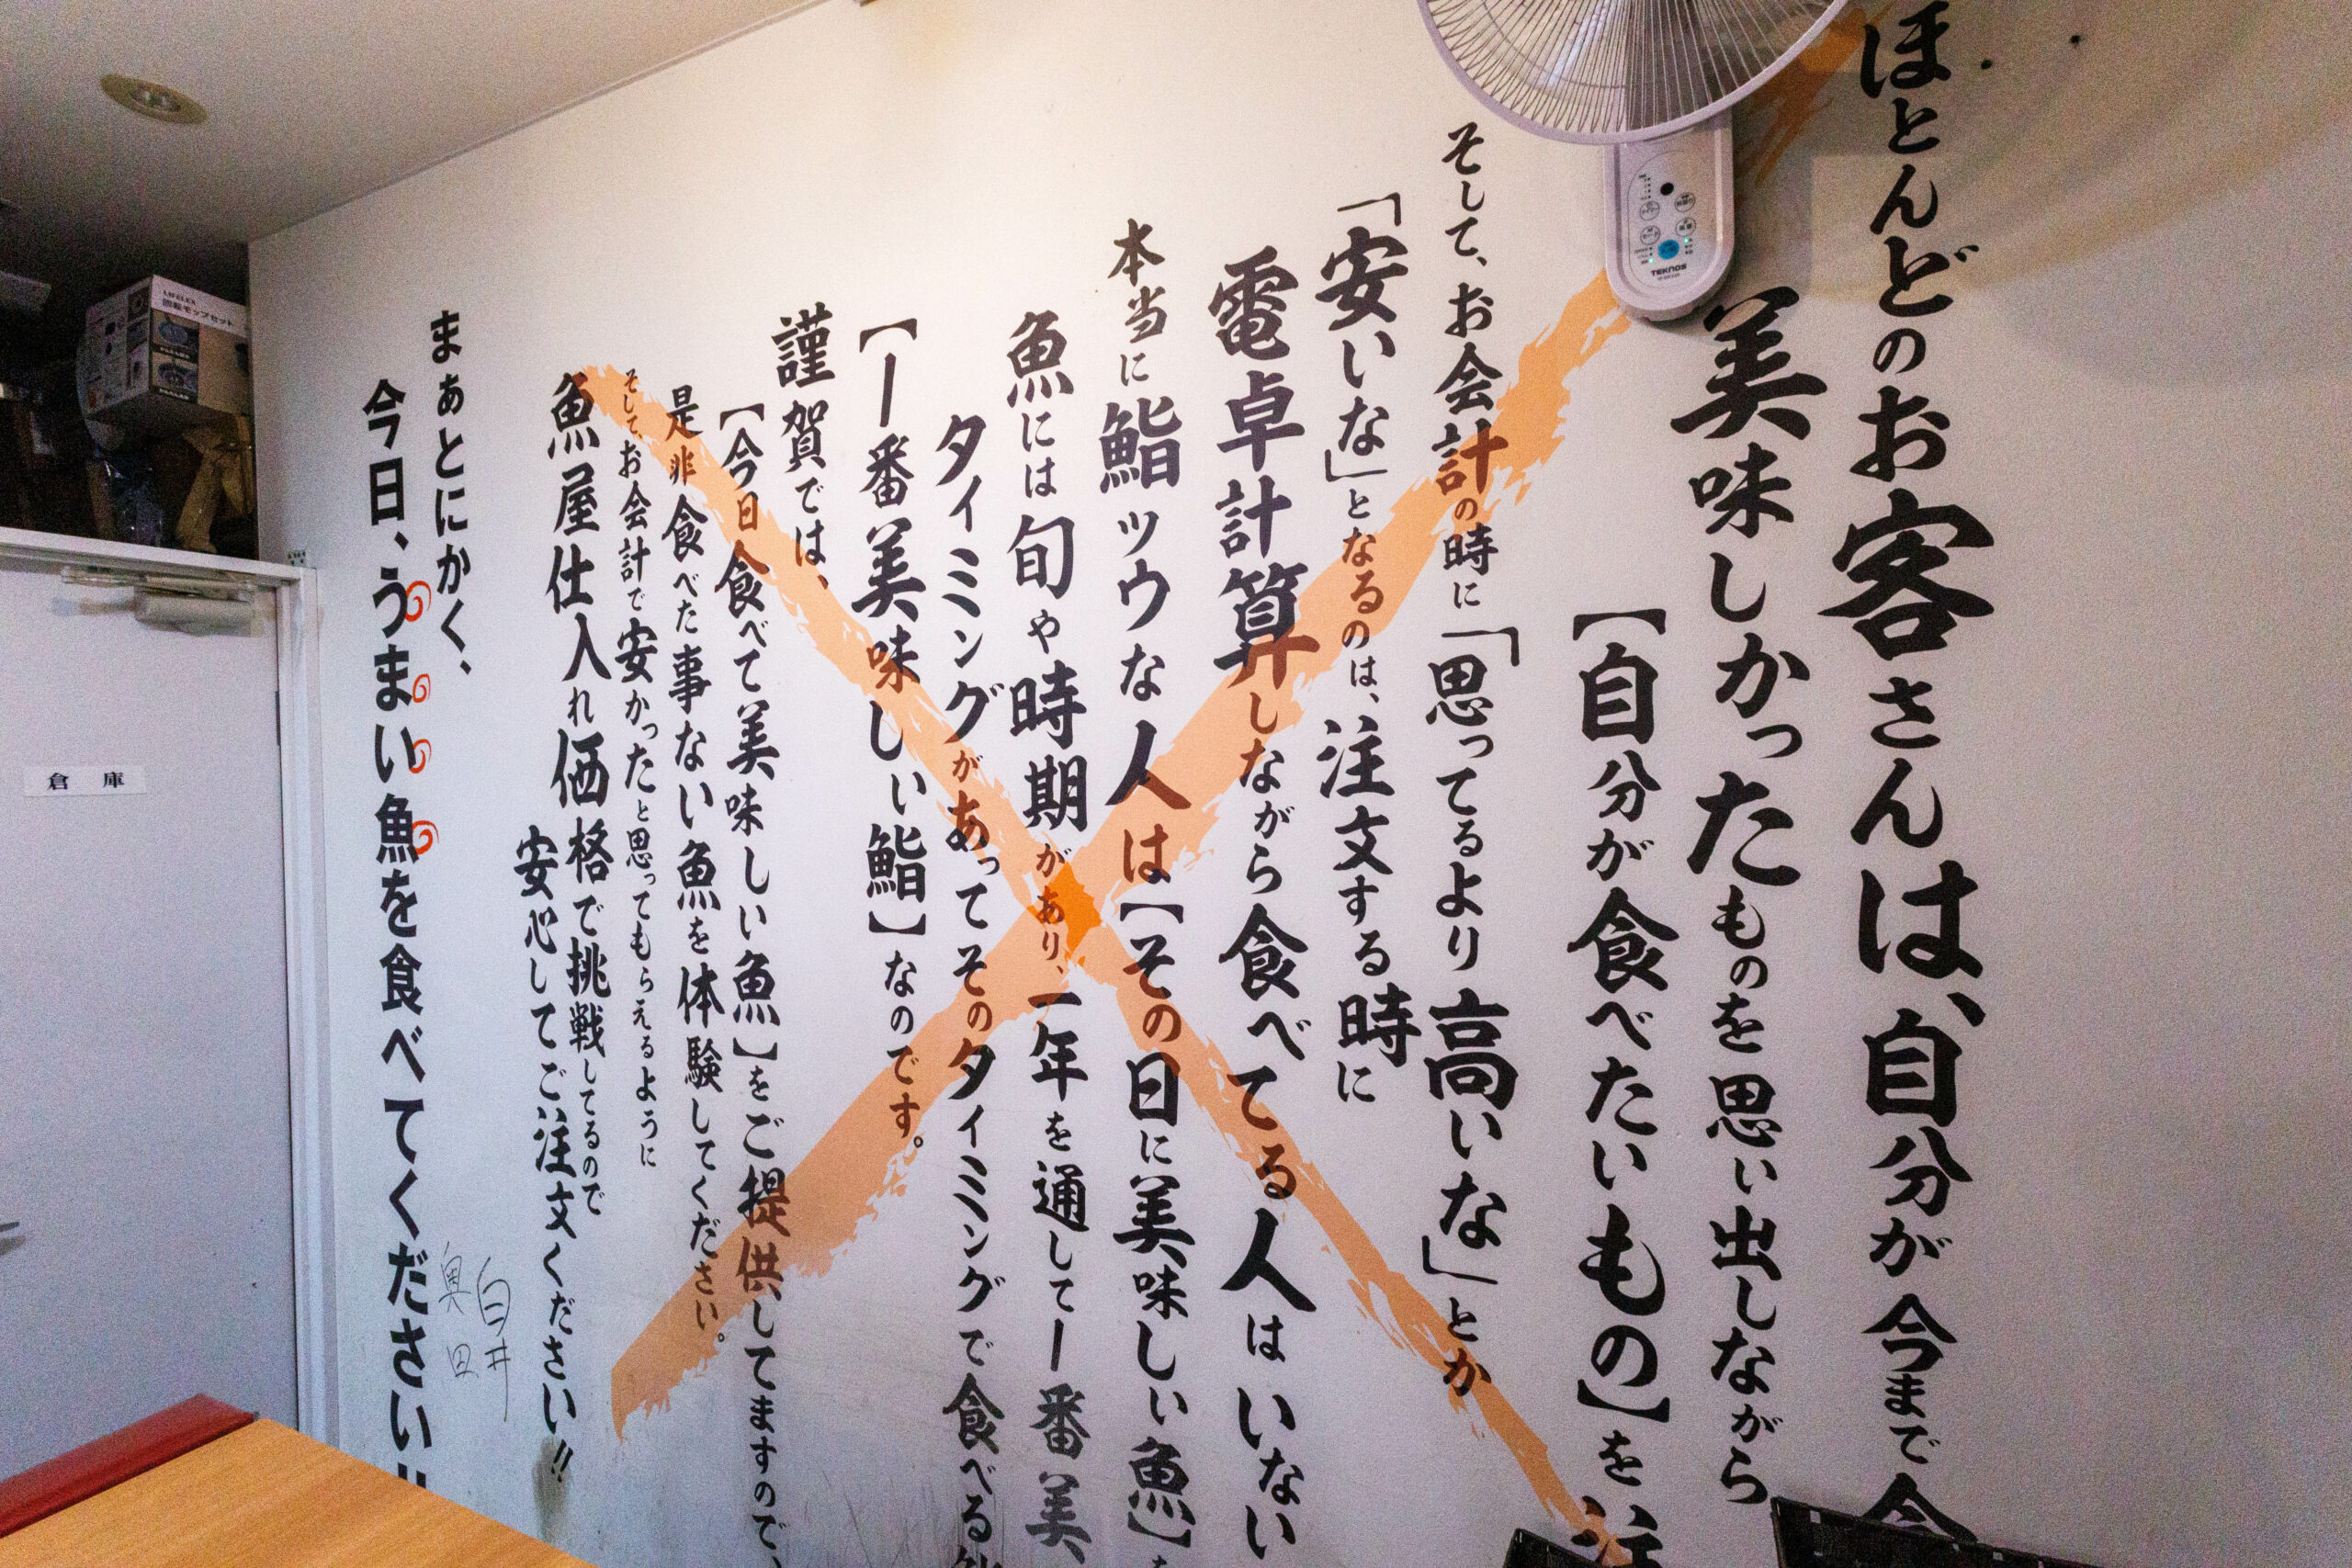 ほとんどのお客さんは、自分が今まで食
美味しかったものを思い出しながら
【自分が食べたいもの】を注
そして、お会計の時に「思ってるより高いな」とか
「安いな」となるのは、注文する時に
電卓計算しながら食べてる人はいない
本当に鮨ツウな人は【その日に美味しい魚】を
魚には旬や時期があり、一年を通して一番美
タイミングがあってそのタイミングで食べる鮨
【一番美味しい鮨】なのです。
謹賀では、
【今日食べて美味しい魚】をご提供してますので、
是非食べた事ない魚を体験してください。
そして、お会計で安かったと思ってもらえるように
魚屋仕入れ価格で挑戦してるので
安心してご注文ください!!
まぁとにかく、
今日、うまい魚を食べてください!!
白井
奥田
倉庫
TEKNOS
LIFELEX
回転モップセット